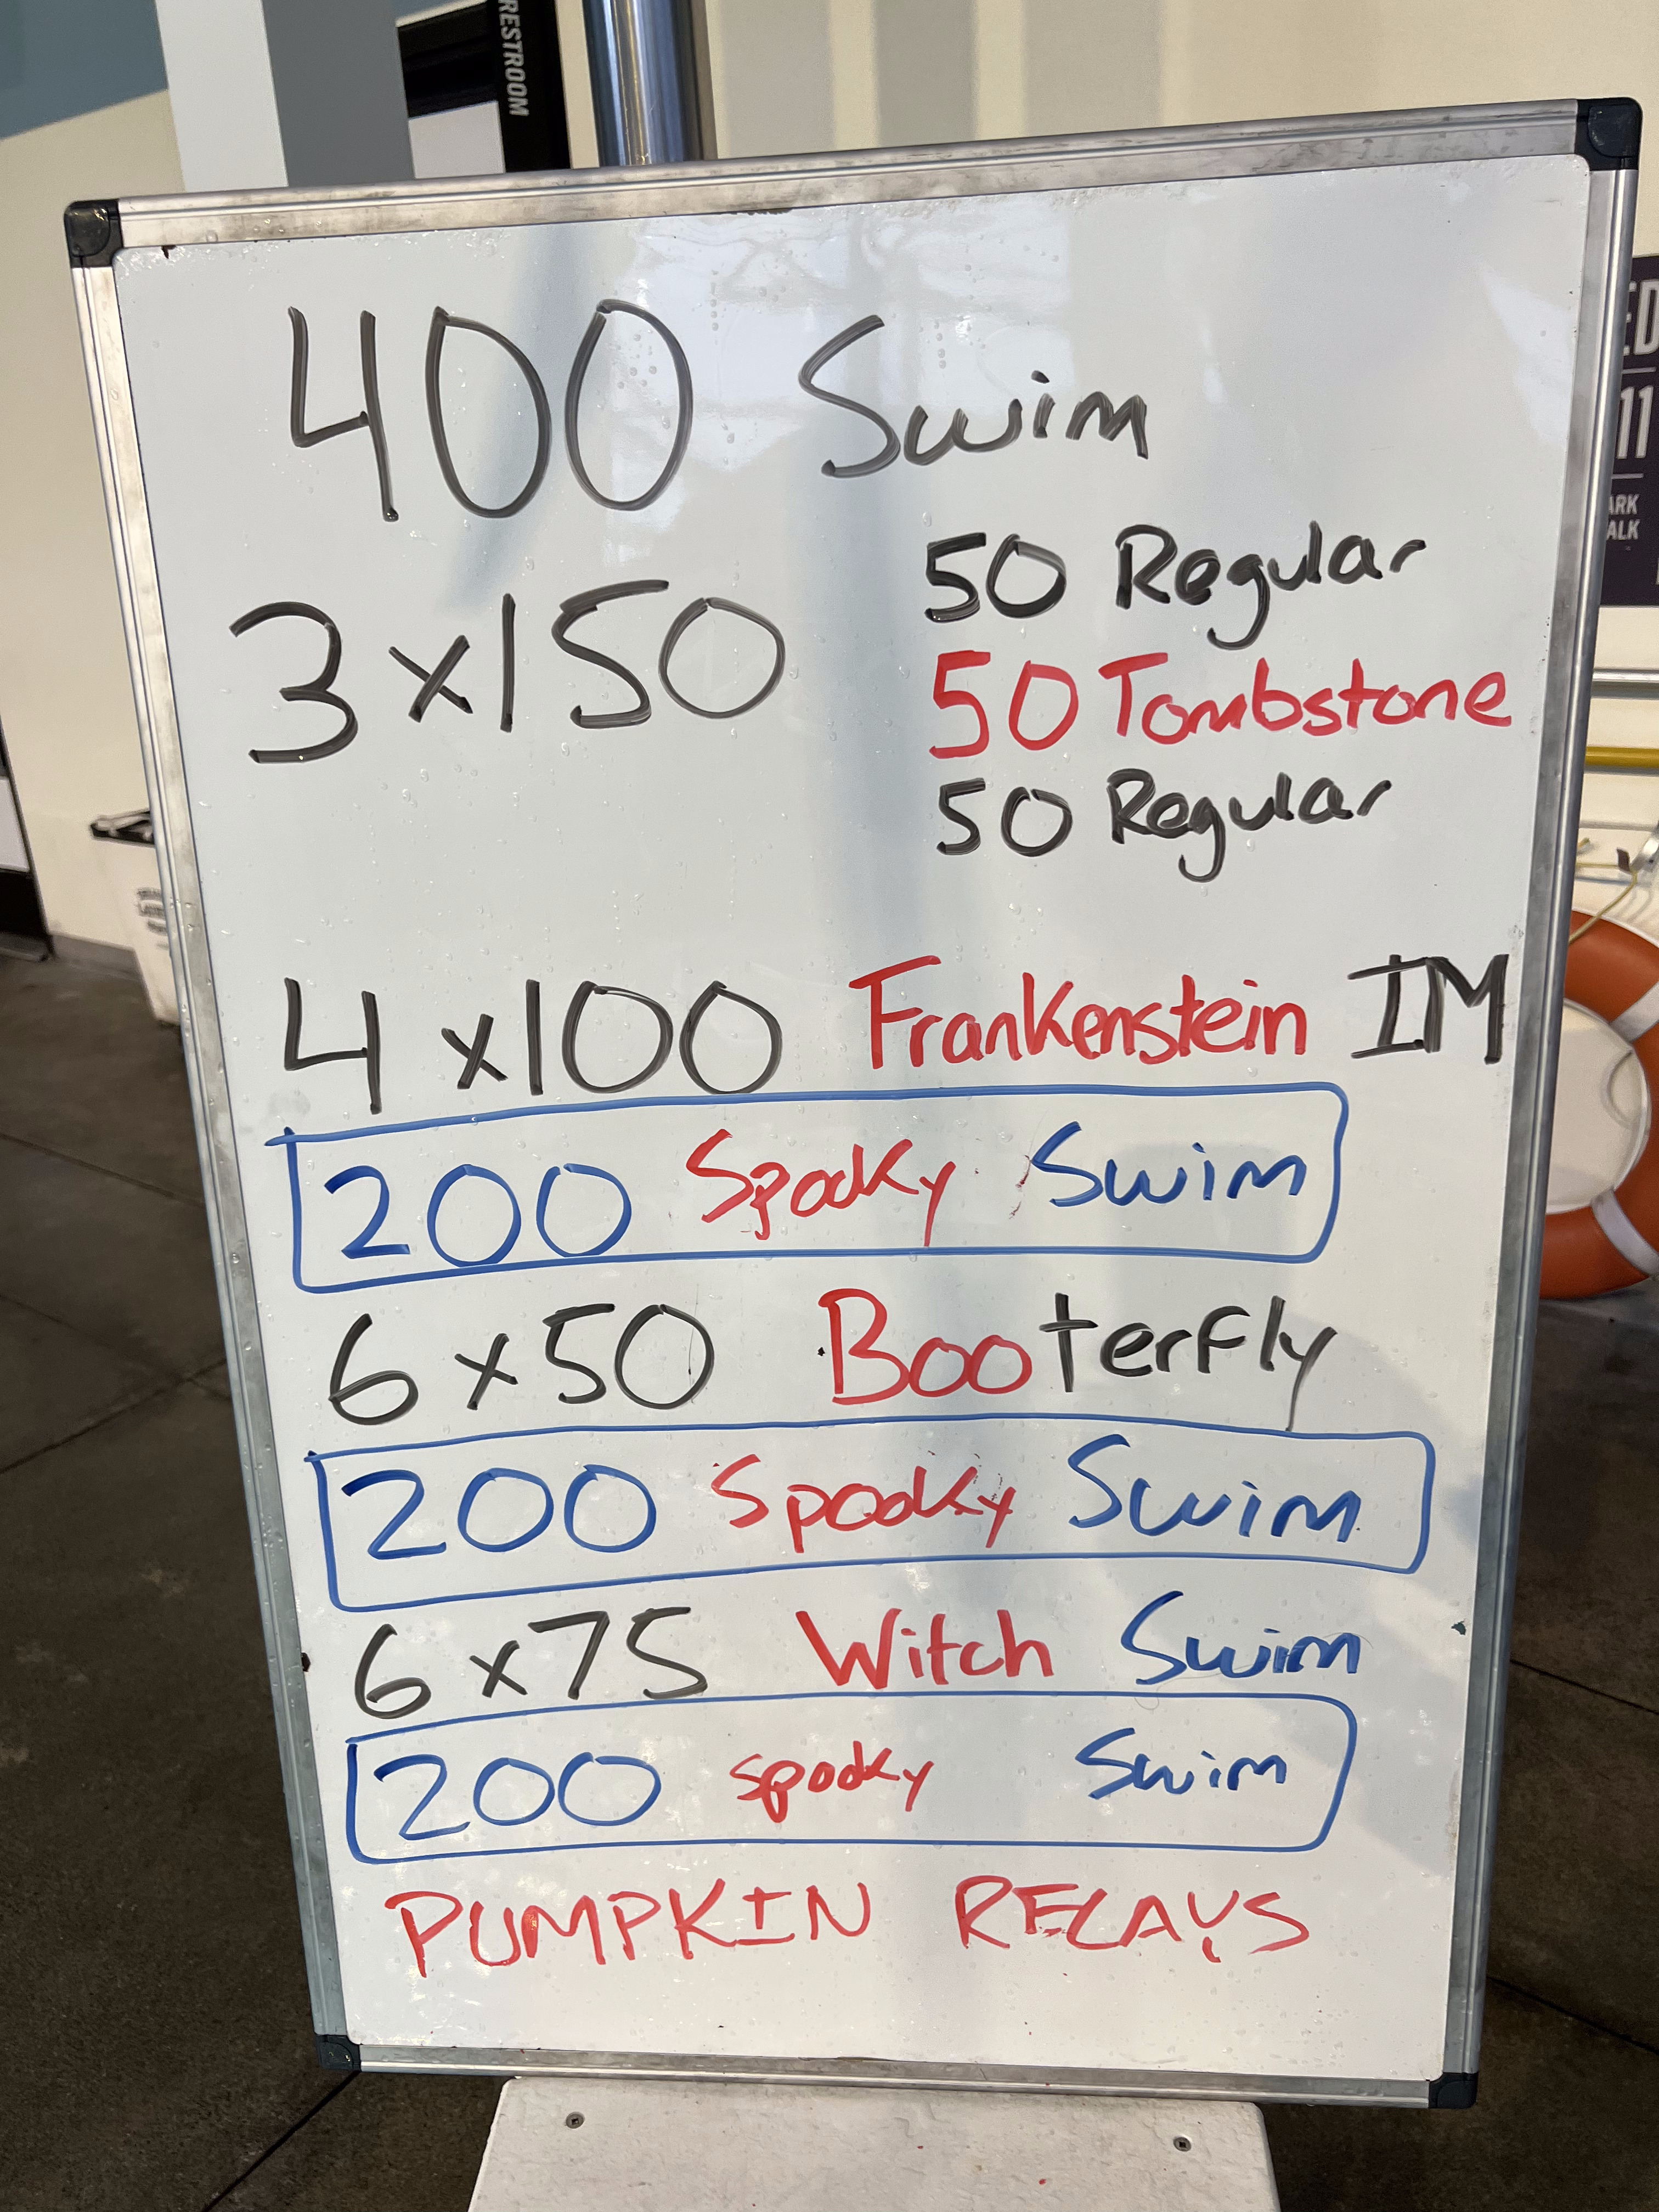 RESTROOM
400 Swim
3x150
50 Regular
50 Tombstone
50 Regular
4x100 Frankenstein IM
200 Spooky Swim
6x50 Booterfly
200 Spooky Swim
6x75 Witch Swim
200 Spooky Swim
PUMPKIN RELAYS
11